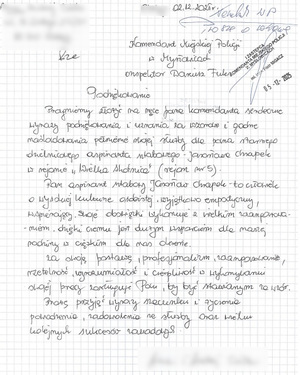 02.12.2025r.
Komendant Miejski Policji
w Mysłowicach
inspektor Dariusz
Podziękowanie
Pragniemy złożyć na ręce pana komendanta serdeczne
wyrazy podziękowania i uznania za wzorową i godną
naśladowania pełnienie swojej służby dla pana starszego
dzielnicowego aspiranta sztabowego Jarosław Chrapek
w rejonie „ Wielka Skotnica" (rejon nr 5).
Pan aspirant sztabowy Jarosław Chrapek to człowiek
o wysokiej kulturze osobistej, wyjątkowo empatyczny,
wspierający, swoje obowiązki wykonuje z wielkim zaangażowa-
niem, dzięki czemu jest dużym wsparciem dla naszej
rodziny w ciężkim dla nas okresie.
Za swoją postawę, profesjonalizm, zaangażowanie,
rzetelność, wyrozumiałość i cierpliwość w wykonywaniu
swojej pracy zasługuje Pan, by być stawianym za wzór.
Proszę przyjąć wyrazy szacunku i życzenia
powodzenia, zadowolenia ze służby oraz wielu
kolejnych sukcesów zawodowych